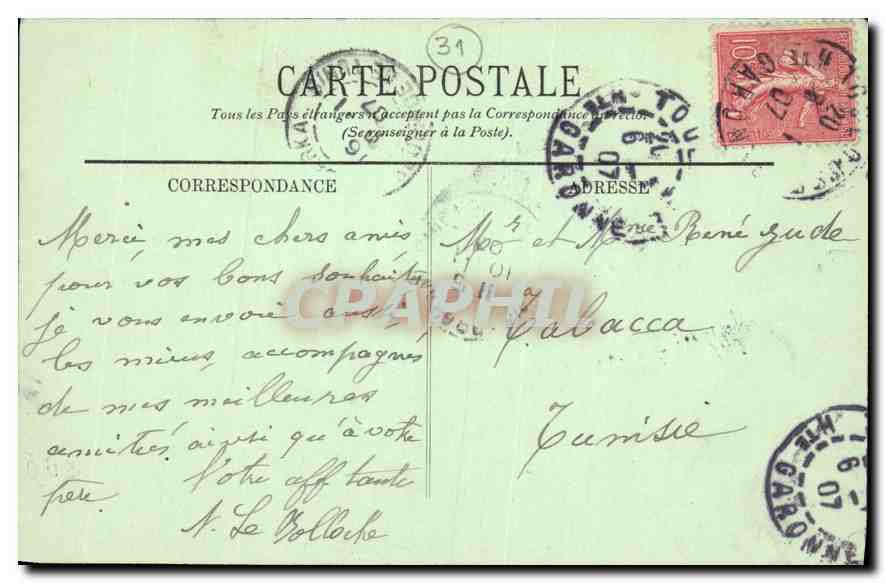 31
CARTE POSTALE
Tous les Pays étrangers n'acceptent pas la Correspondance au recto.
(Se renseigner à la Poste).
CORRESPONDANCE
Merci, mes chers amis
pour vos bons souhaits
je vous envoie aussi,
les miens, accompagnes
de mes meilleures
amitiés, ainsi qu'à votre
père. Votre aff tante
N. Le
ADRESSE
Mr et Mme René
à
Tabacca
Tunisie
10
TOUL
HTE GARONNE
6 07
HTE GARONN
6
07
CPAPHIL